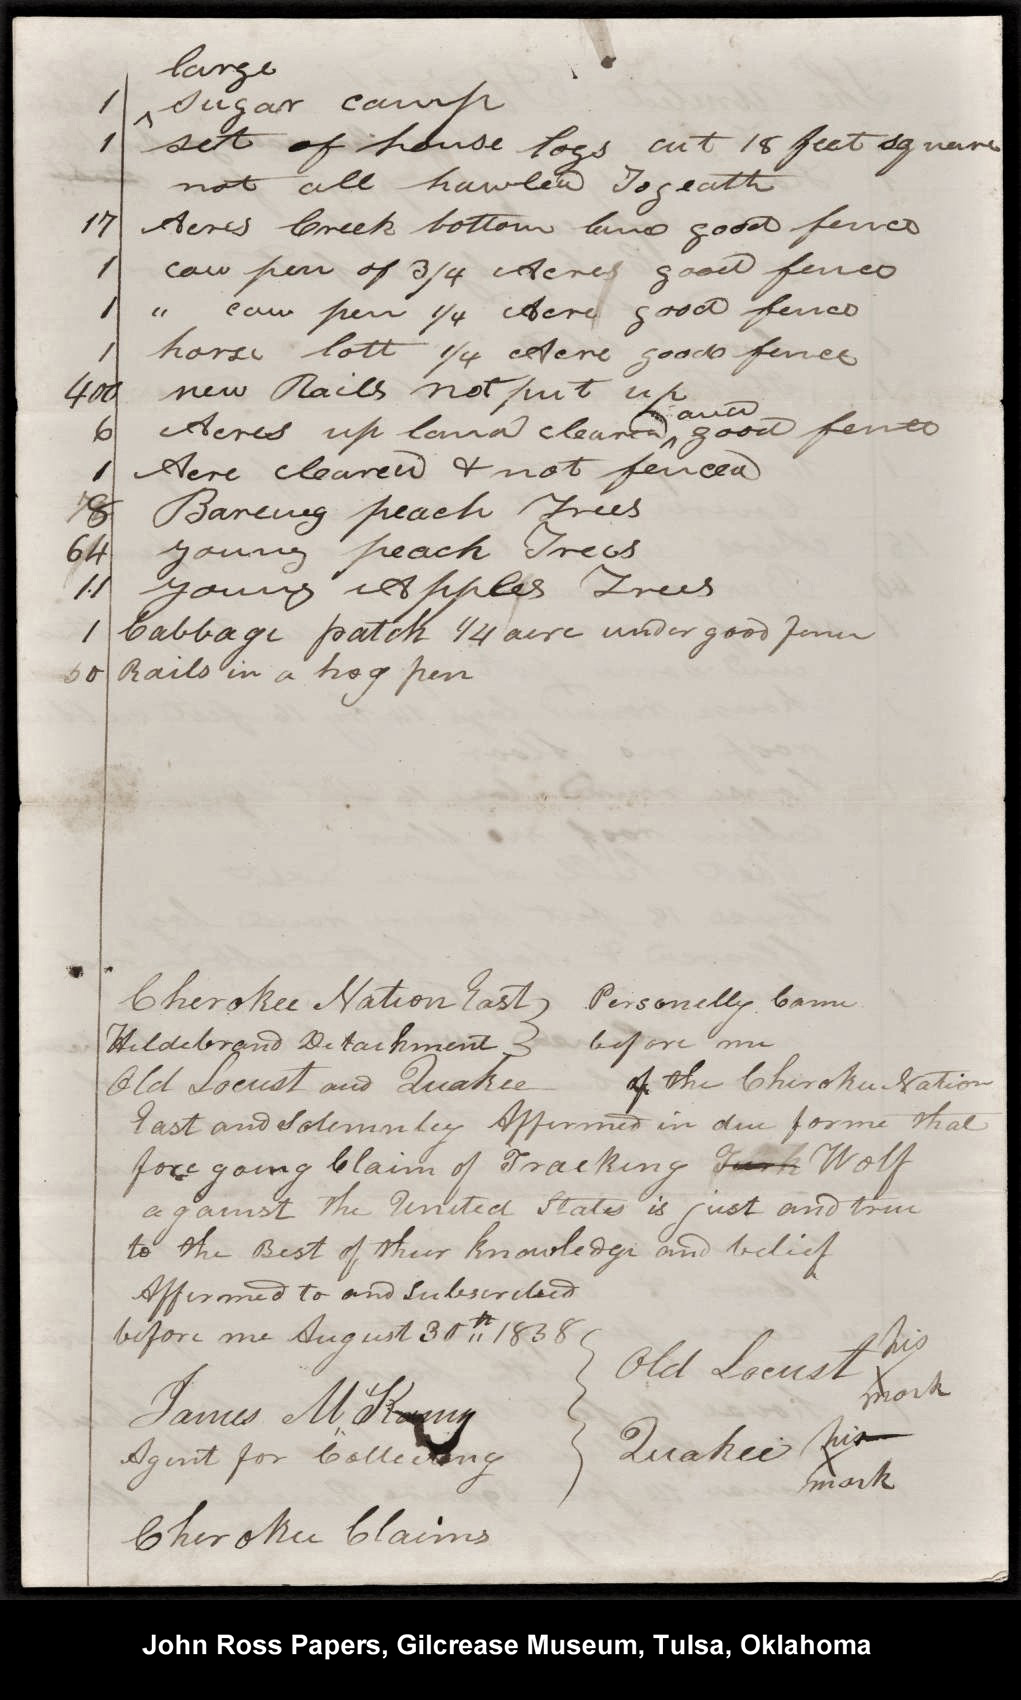 large
1 ^ sugar camp
1 sett of house logs cut 18 feet square
not all hawled Togeath
17 Acres Creek bottom land good fence
1 cow pen of 3/4 Acres good fence
1 " cow pen 1/4 Acre good fence
1 horse lott 1/4 Acre good fence
400 new Rails not put up
6 Acres up land cleared ^ and good fence
1 Acre cleared & not fenced
78 Bareing peach Trees
64 young peach Trees
11 young Apples Trees
1 Cabbage patch 1/4 acre under good fence
60 Rails in a hog pen
Cherokee Nation East } Personelly Came
Hildebrand Detachment } before me
Old Locust and Quakee of the Cherokee Nation
East and Solemnley Affirmed in due forme that
fore going Claim of Tracking Turk Wolf
against the United States is just and true
to the Best of their knowledge and belief
Affirmed to and Subscribed
before me August 30th 1838
Old Locust his
mark
James McKamy
Quakee his
mark
Agent for Collecting
Cherokee Claims
John Ross Papers, Gilcrease Museum, Tulsa, Oklahoma